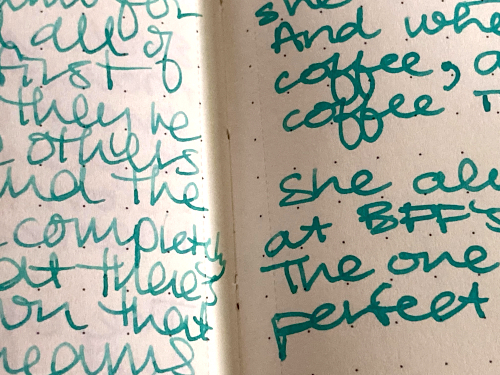 for
all of
first of
they're
others
and the
completely
at there's
on that
she
And whe
coffee, a
coffee T
she al
at BFF's
The one
perfect